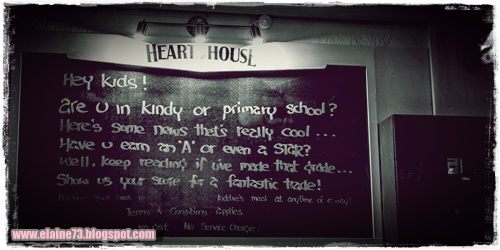 HEART HOUSE
Hey kids!
are u in kindy or primary school?
Here's some news that's really cool...
Have u earn an 'A' or even a STAR?
Well, keep reading if u've made that grade...
Show us your score for a fantastic trade!
kiddie's meal at anytime of a day!
Terms & Conditions applies
No Service Charge.
www.elaine73.blogspot.com